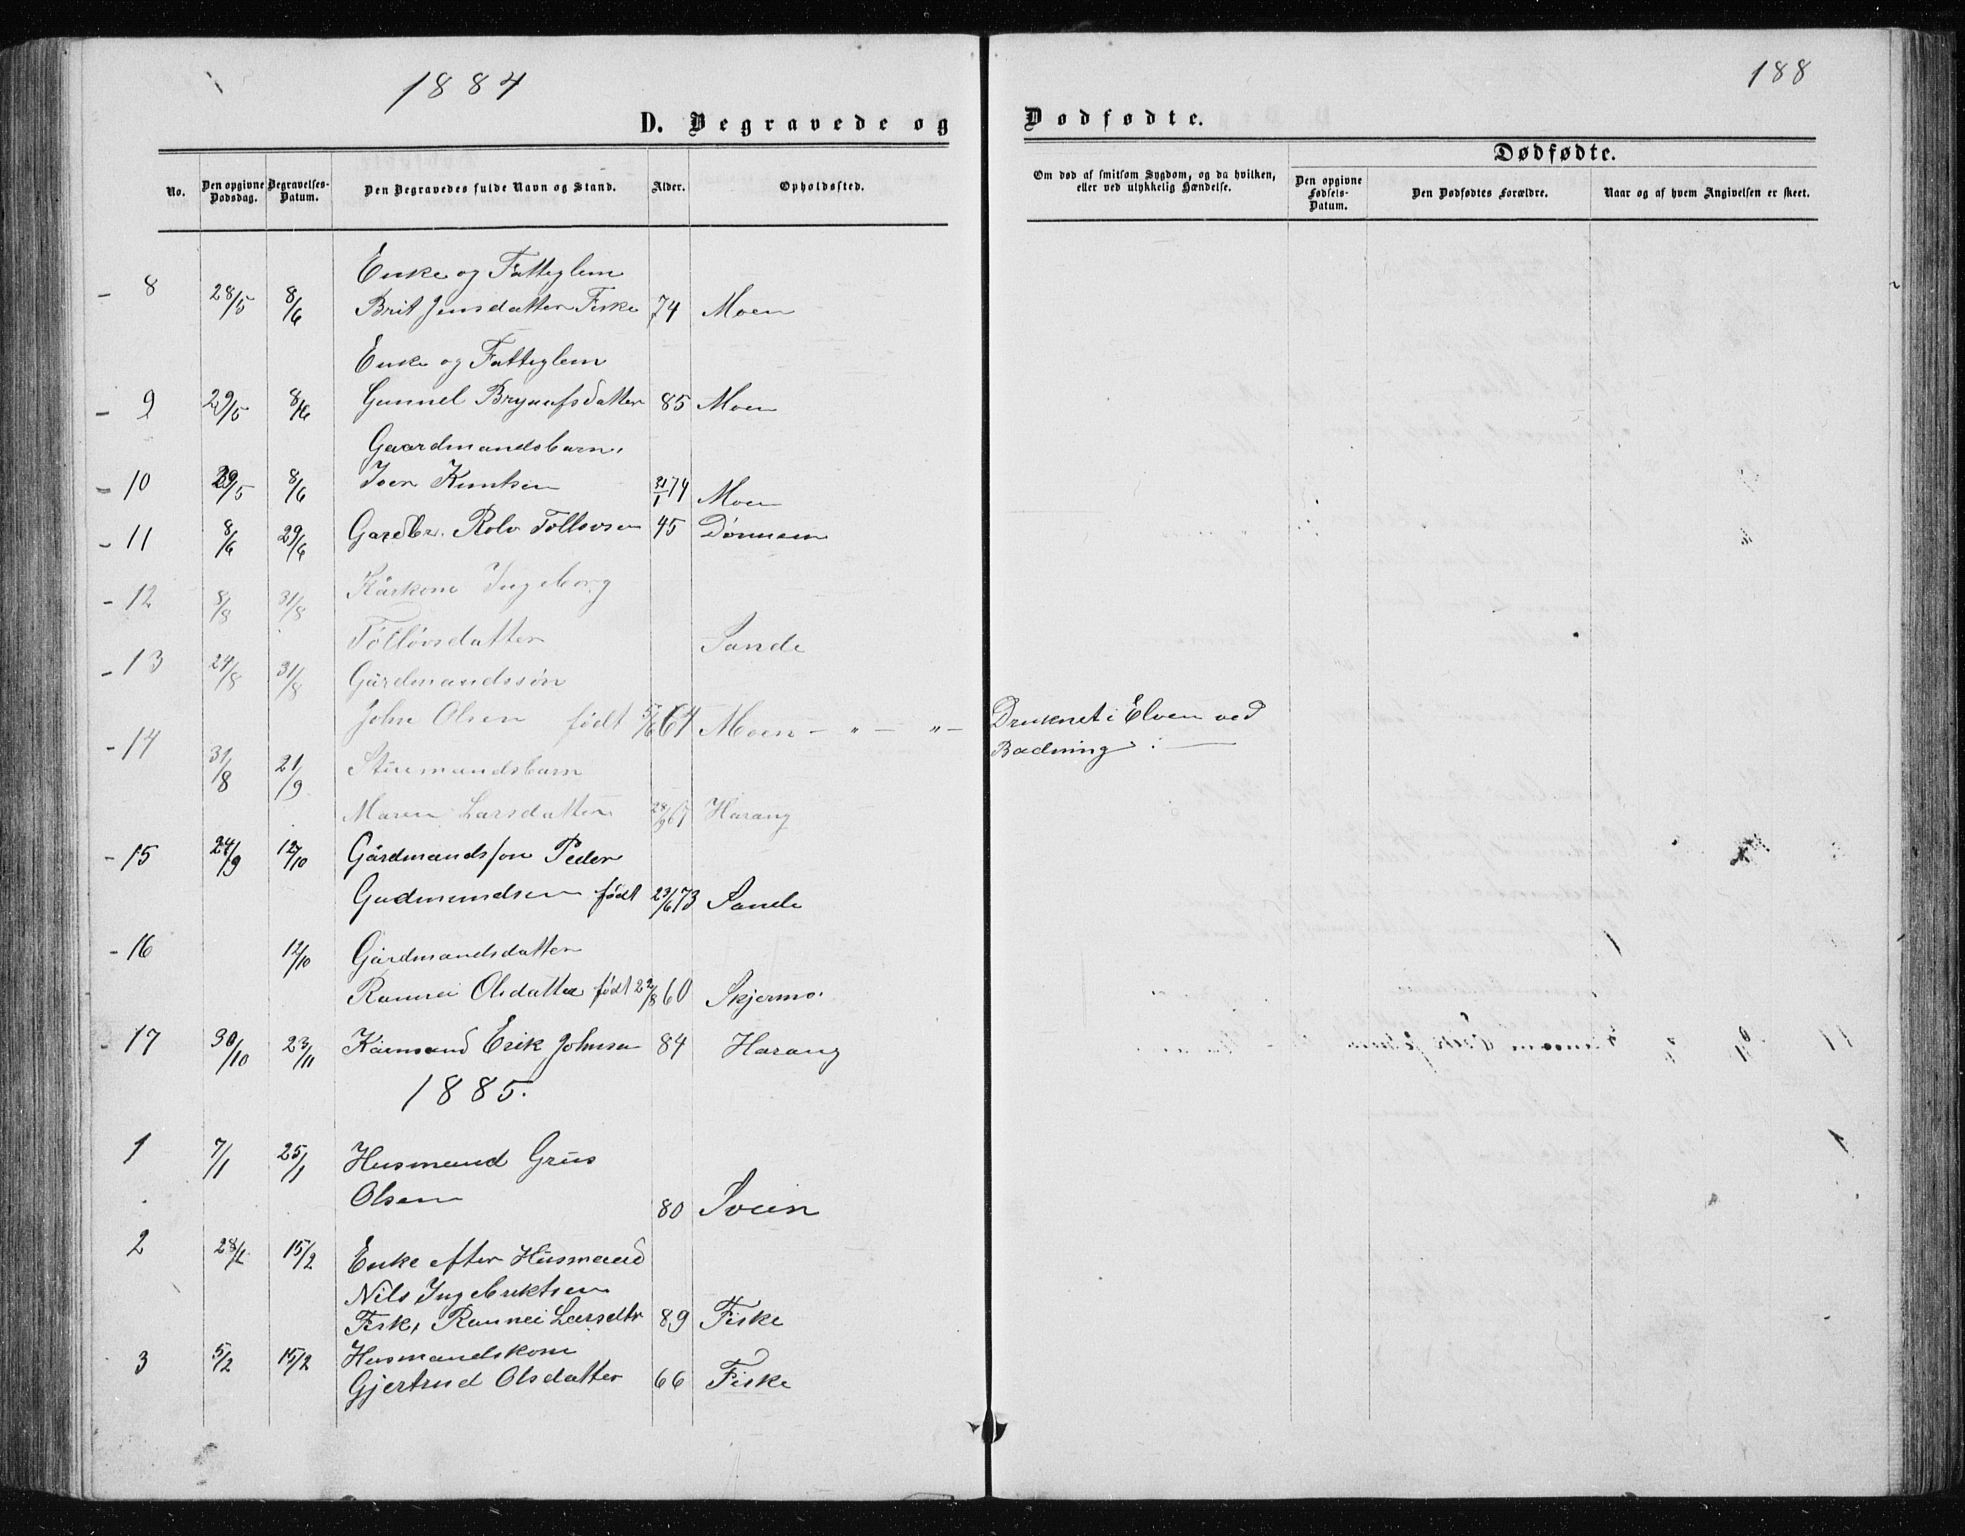 1884
188
D. Begravede og Dødfødte.
Dødfødte.
No.
Den opgivne Dødsdag.
Begravelses-Datum.
Den Begravedes fulde Navn og Stand.
Alder.
Opholdssted.
Om død af smitsom Sygdom, og da hvilken, eller ved ulykkelig Hændelse.
Den opgivne Fødsels-Datum.
Den Dødfødtes Forældre.
Naar og af hvem Angivelsen er skeet.
Enke og Fatteglem
- 8 28/5 8/6 Brit Jensdatter Fiske 74 Moen
Enke og Fatteglem
- 9 29/5 8/6 Gunnel 85 Moen
Gaardmandsbarn.
- 10 29/5 8/6 Iver Knutsen 31/1 74 Moen
- 11 8/6 29/6 Gardbr. Rolv Tollovsen 45 Dønnem
- 12 8/8 31/8 Kårkone Ingeborg
Tollovsdatter Sande
- 13 24/8 31/8 Gårdmandssøn
John Olsen født 5/6 64 Moen - " - " - Druknet i Elven ved
Badning.
- 14 31/8 21/9
Maren Larsdatter 28/9 67 Harang
- 15 24/9 12/10 Gårdmandsson Peder
Gudmundsen født 23/6 73 Sande
- 16 12/10 Gårdmandsdatter
Rannei Olsdatter født 22/8 60 Skjermo.
- 17 30/10 23/11 Kårmand Erik Johnsen 84 Harang
1885.
1 7/1 25/1 Husmand Grus
Olsen 80 Svein
2 28/1 15/2 Enke efter Husmand
Nils Ingebriktsen
Fisk, Rannei Larsdtr 89 Fiske
3 5/2 15/2 Husmandskone
Gjertrud Olsdatter 66 Fiske